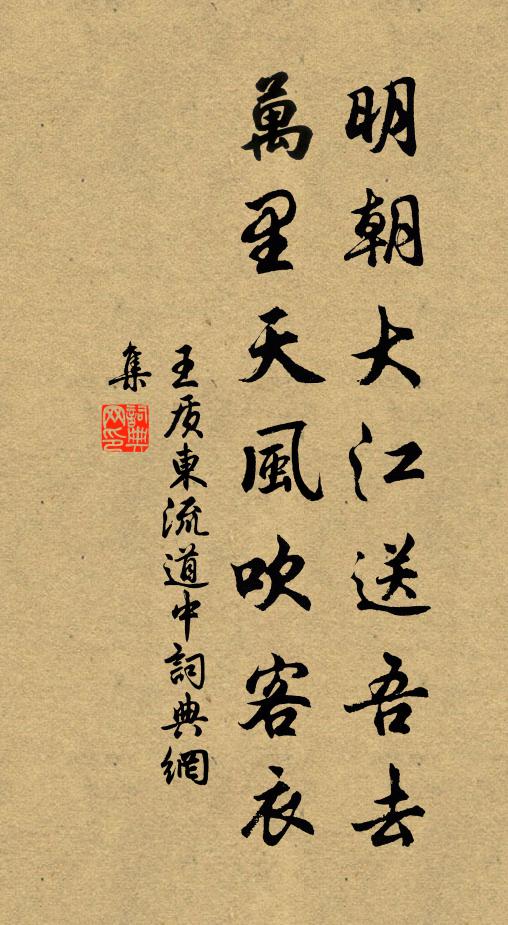 明朝大江送吾去
萬里天風吹客衣
王质東流道中詞典網
集
詞典
网印